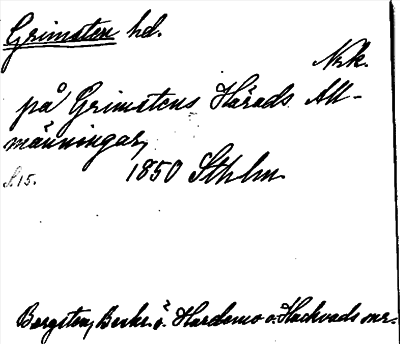 Grimsten hd.
Nrk.
på Grimstens Härads All-
männingar,
S. 15. 1850 Sthlm
Bergsten, Beskr. ö. Hardemo o. Hackvads snr.